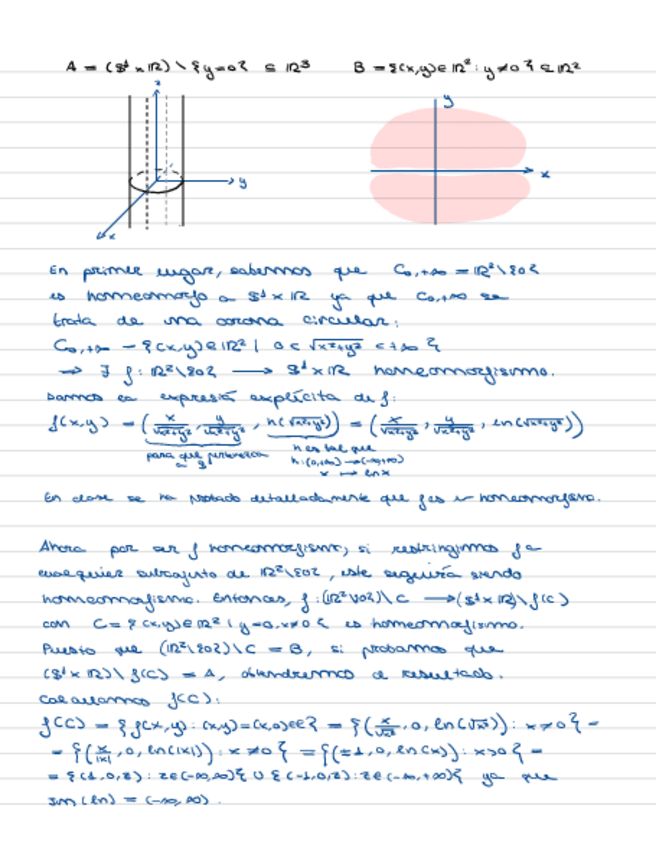 A = (S¹ × ℝ) \ {y=0} ⊆ ℝ³ B = {(x,y) ∈ ℝ² : y ≠ 0} ⊆ ℝ²
z y
y x
x
En primer lugar, sabemos que C₀,₊∞ = ℝ²\{0}
es homeomorfo a S¹ × ℝ ya que C₀,₊∞ se
trata de una corona circular:
C₀,₊∞ = {(x,y) ∈ ℝ² | 0 < √x²+y² < +∞}
⇒ ∃ f : ℝ²\{0} → S¹ × ℝ homeomorfismo.
Damos la expresión explícita de f:
f(x,y) = (x/√x²+y², y/√x²+y², h(√x²+y²)) = (x/√x²+y², y/√x²+y², ln(√x²+y²))
para que pertenezca h es tal que
a S¹ h: (0,+∞) → (-∞,+∞)
x ↦ ln x
En clase se ha probado detalladamente que f es un homeomorfismo.
Ahora por ser f homeomorfismo, si restringimos f a
cualquier subconjunto de ℝ²\{0}, este seguirá siendo
homeomorfismo. Entonces, f : (ℝ²\{0}) \ C → (S¹ × ℝ) \ f(C)
con C = {(x,y) ∈ ℝ² | y=0, x≠0} es homeomorfismo.
Puesto que (ℝ²\{0}) \ C = B, si probamos que
(S¹ × ℝ) \ f(C) = A, obtendremos el resultado.
Calculamos f(C):
f(C) = {f(x,y) : (x,y)=(x,0) ∈ C} = {(x/√x², 0, ln(√x²)) : x ≠ 0} =
= {(x/|x|, 0, ln(|x|)) : x ≠ 0} = {(±1, 0, ln(x)) : x > 0} =
= {(1,0,z) : z ∈ (-∞,∞)} ∪ {(-1,0,z) : z ∈ (-∞,+∞)} ya que
Im(ln) = (-∞,∞).